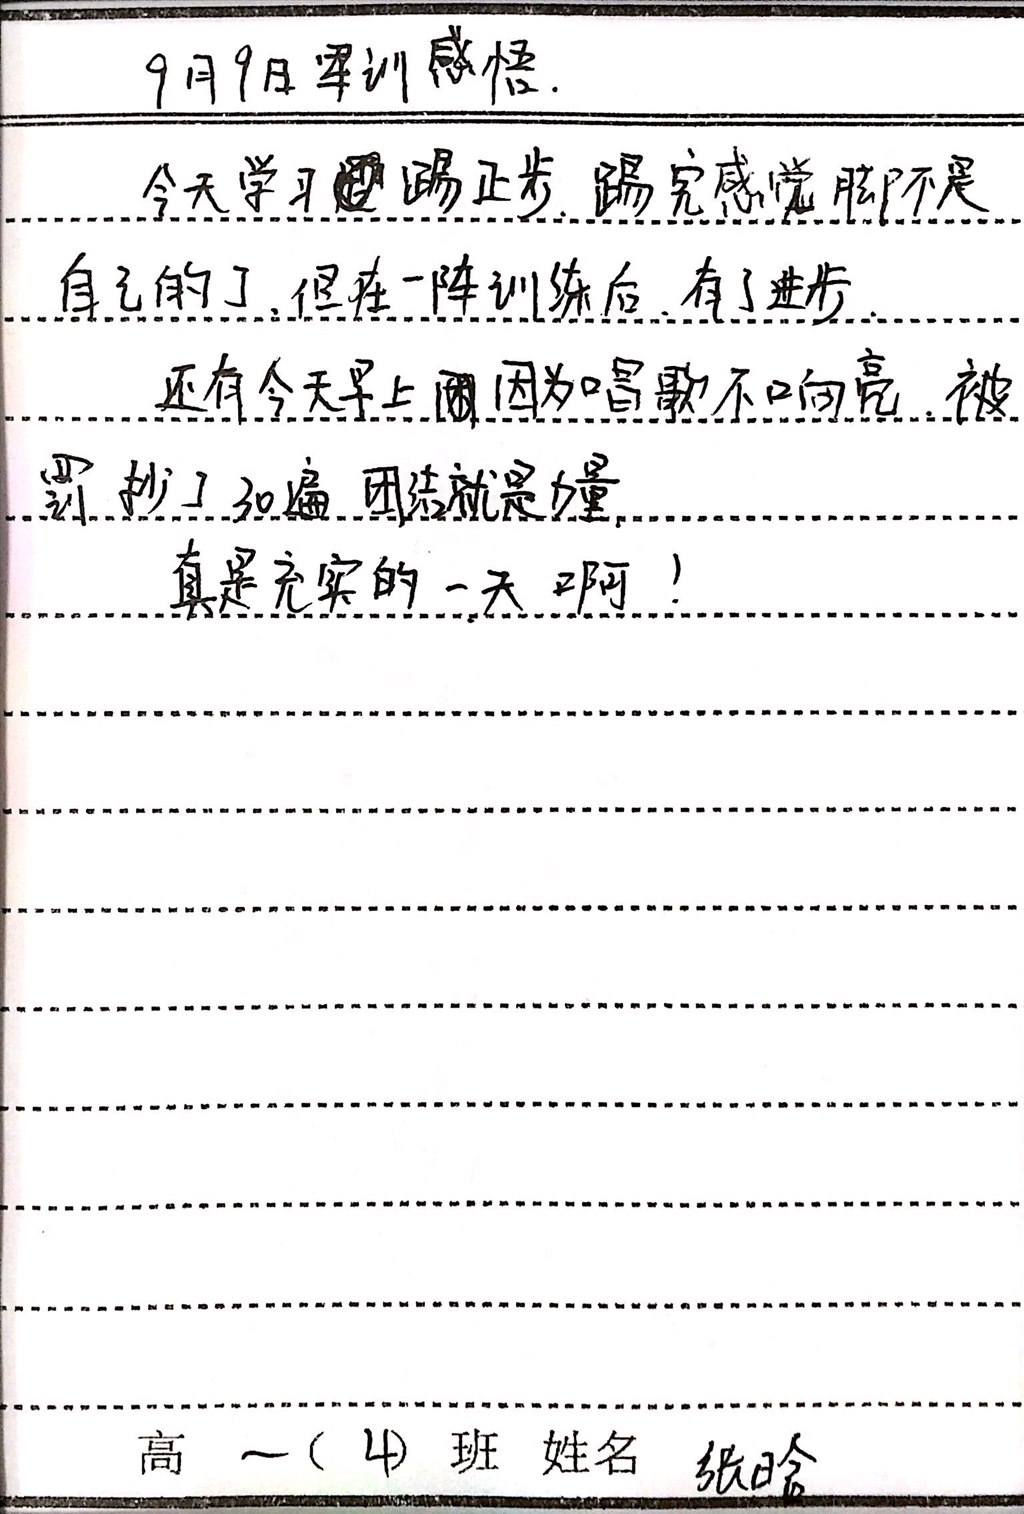 9月9日军训感悟.
今天学习踢正步.踢完感觉脚不是
自己的了.但在一阵训练后.有了进步.
还有今天早上因为唱歌不响亮.被
罚抄了30遍 团结就是力量.
真是充实的一天啊!
高一(4)班 姓名 张晗